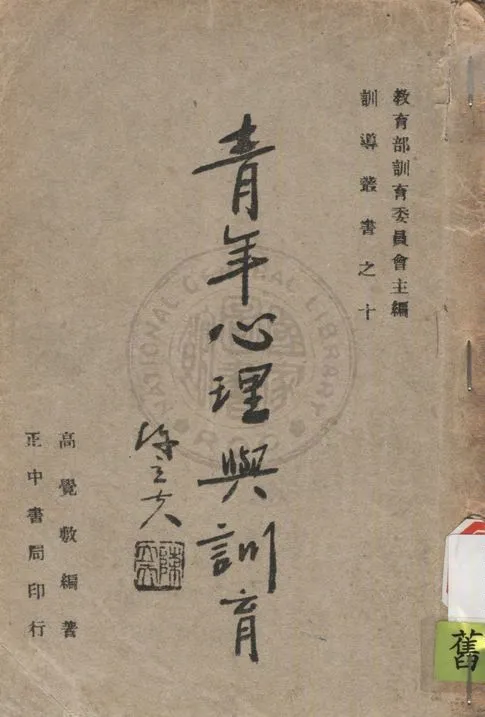 教育部訓育委員會主編
訓導叢書之十
青年心理與訓育
陳立夫
高覺敷編著
正中書局印行
NATIONAL CENTRAL LIBRARY
舊